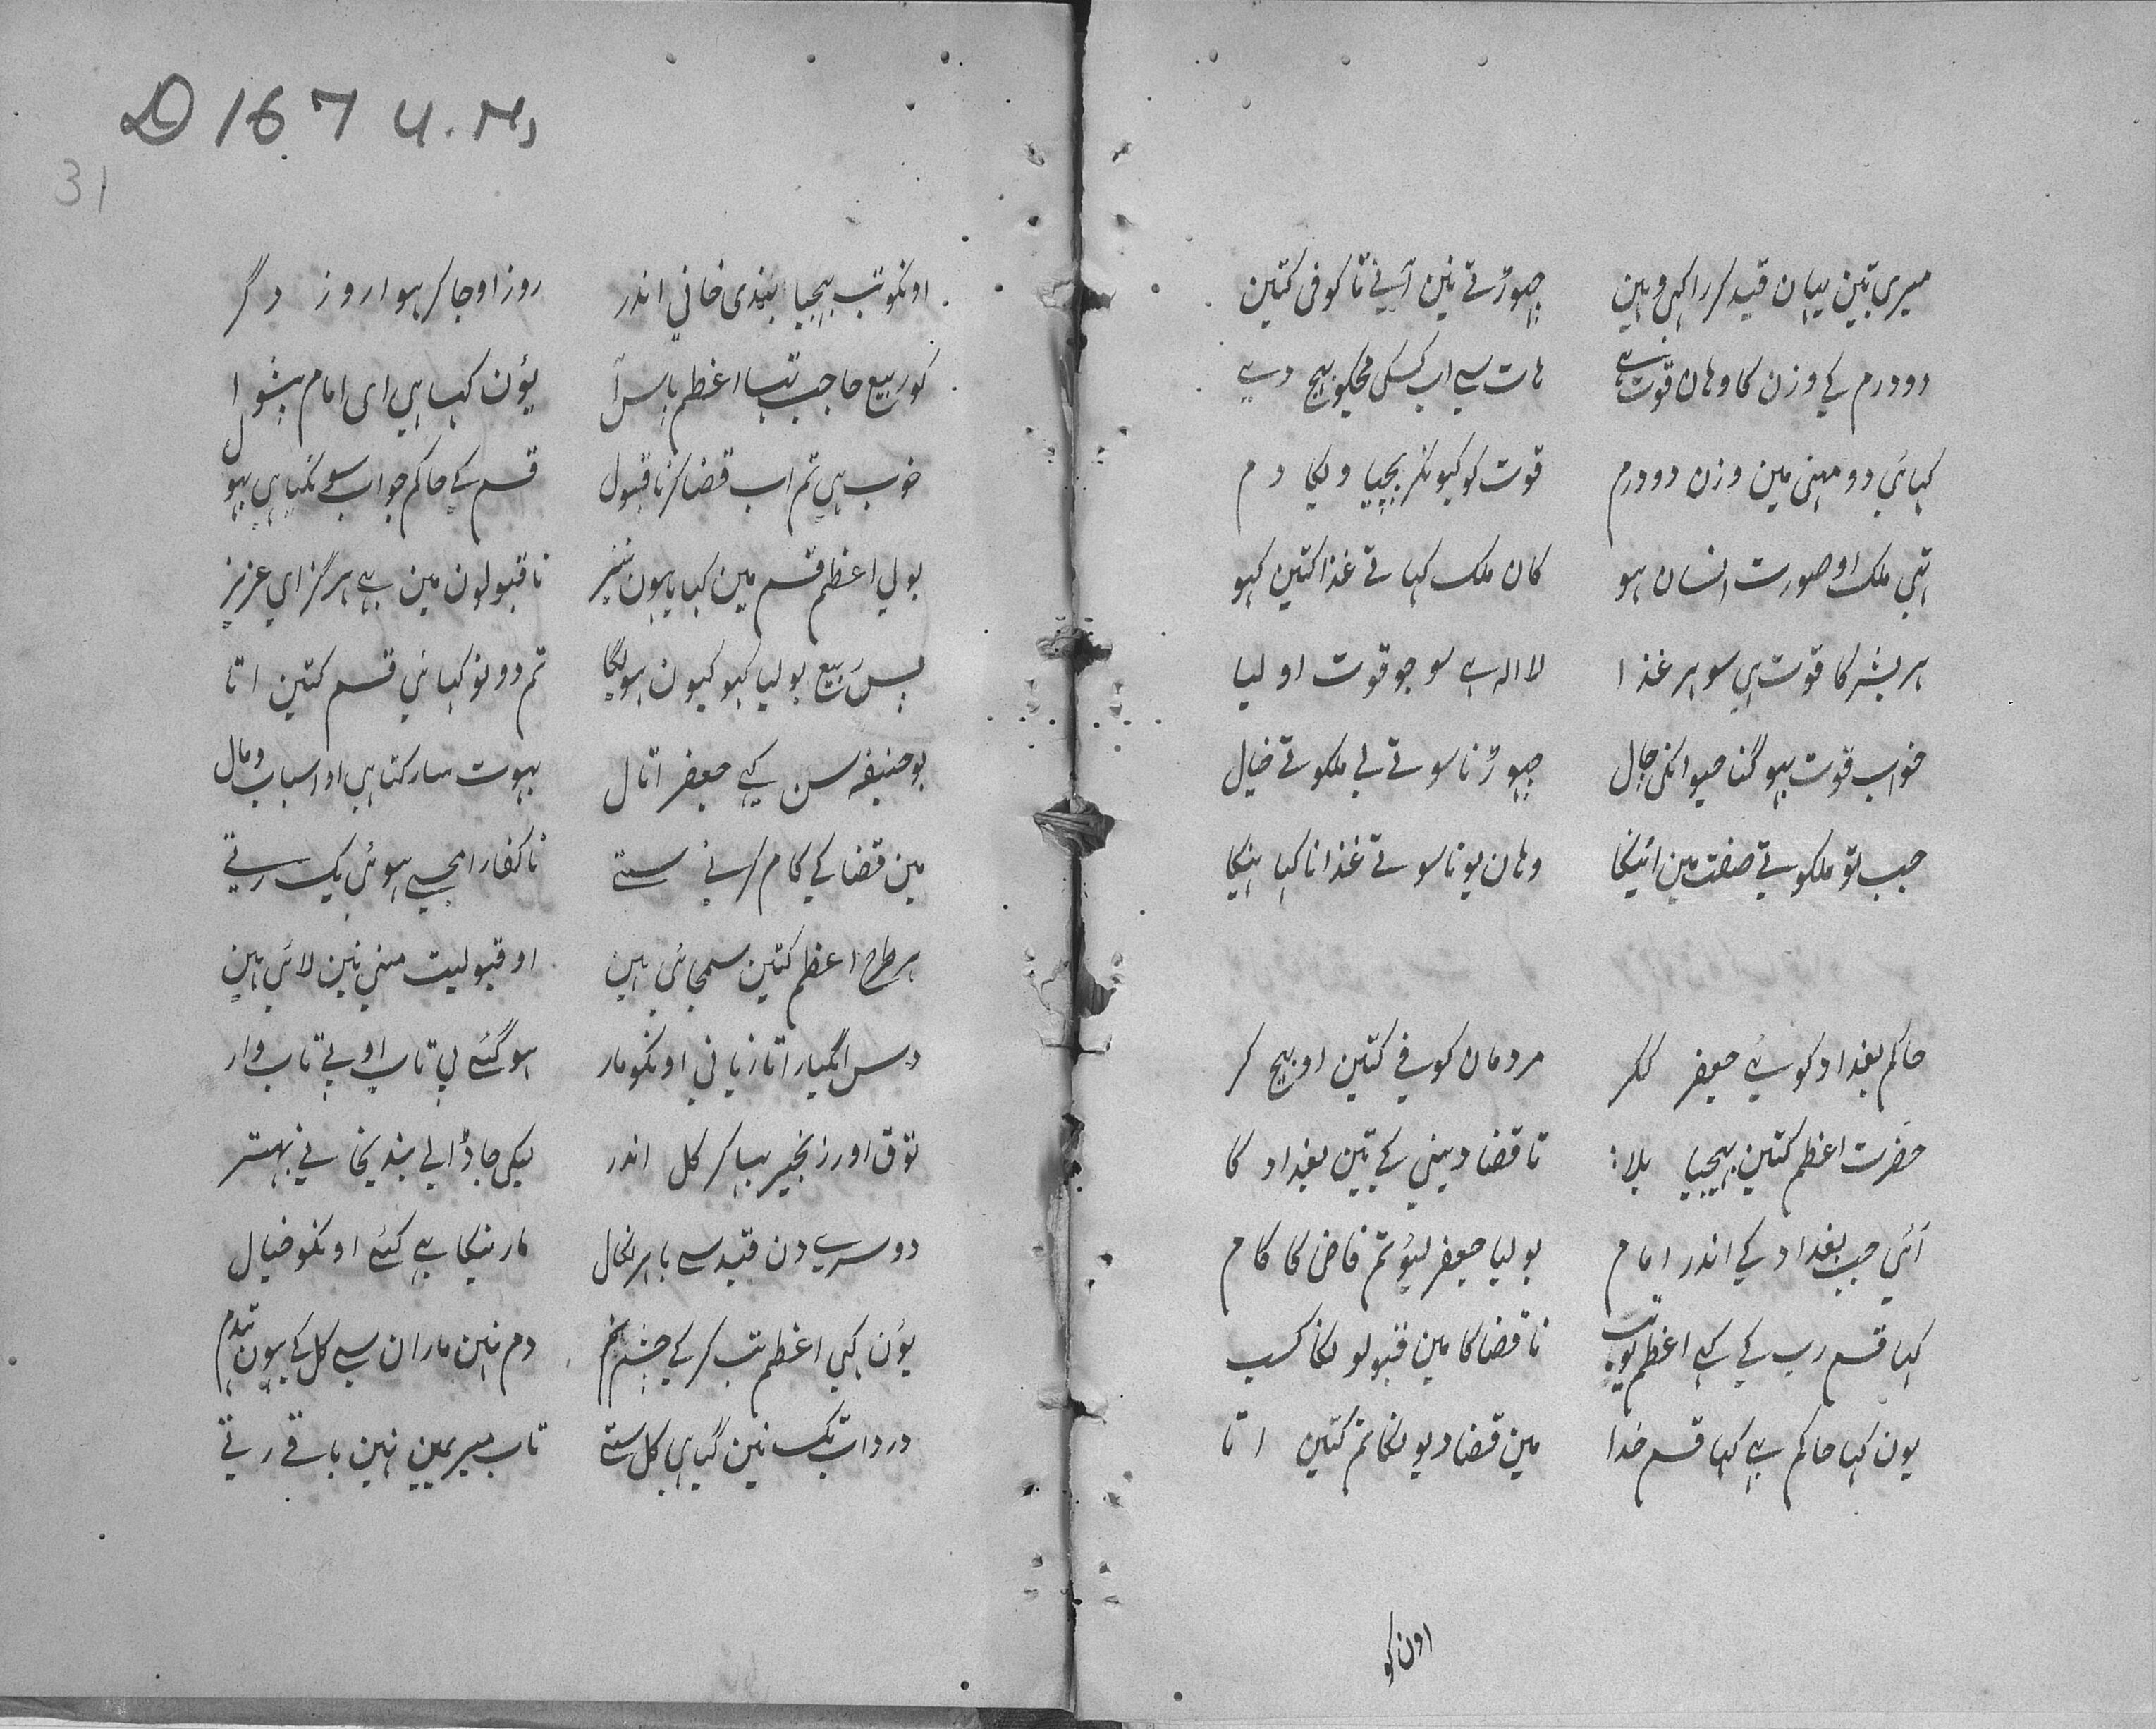 میری تین یہان قید کر راکہی وہین جہوڑتے نین آنے تا کوفی کتین
دو درم کے وزن کا وہان قوت سے ہات سے اب کسکی مجکو بیج دے
کہائی دو مہنی مین وزن دو درم قوت کو کیونکر بہجیا ولکا دم
تہی ملک او صورت انسان ہو کان ملک کہاتے غذا کتین کہو
ہر بشر کا قوت ہی سو ہر غذا لا الہ ہے سو جو قوت اولیا
خواب قوت ہوگنا حیوانکی حال جہوڑنا سوتے لے ملکوتے خیال
جب تو ملکوتے صفت مین ائیکا وہان یو ناسوتے غذا نا کہائیکا
حاکم بغداد کو سے جعفر لکر مردمان کوفی کتین او بیج کر
حضرت اعظم کتین بہیجیا بلا تا قضا دینی کے تین بغداد کا
آئی جب بغداد کے اندر امام بولیا جعفر لیؤ تم قاضی کا کام
کہا قسم رب کے کہے اعظم یو تب نا قضا کا مین قبولونکا کسب
یون کہا حاکم ہے کہا قسم خدا مین قضا دیونکا تم کتین اتا
اون کو
D 167 U. Ms
31
اونکو تب بہیجیا بندی خانی اندر روز او جا کر ہوا روز دگر
کو ربیع حاجب تبہا اعظم پاس آ یؤن کہا ہی ای امام پیشوا
خوب ہی تم اب قضا کرنا قبول قسم کے حاکم جواب سے نکیا ہی ہو
بولے اعظم قسم مین کہایا ہون نیز نا قبولون مین ہے ہرگز اے عزیز
پس ربیع بولیا کہو کیون ہولگا تم دونو کہائی قسم کتین اتا
بو حنیفہ سن کہے جعفر اتال بہوت سا رکتا ہی او اسباب و مال
مین قضا کے کام کرنے ستے نا کفارا مجسے ہوئی یک رتے
ہر طرح اعظم کتین سمجائی ہین او قبولیت منی نین لائی ہین
دس اگیارا تازیانی اونکو مار ہو گئے بی تاب او بے تاب وار
توق اور زنجیر بہا کر کل اندر لیکی جا ڈالے بندیخانے بہتر
دوسرے دن قید سے باہر نکال مارنیکا ہے کئے اونکو خیال
یؤن کہی اعظم تب کر کے چشم نم دم نین ماران سے کل کے ہون
درد اب تک نین گیا ہی کل ستے تاب میریمین نہین باقے رتے